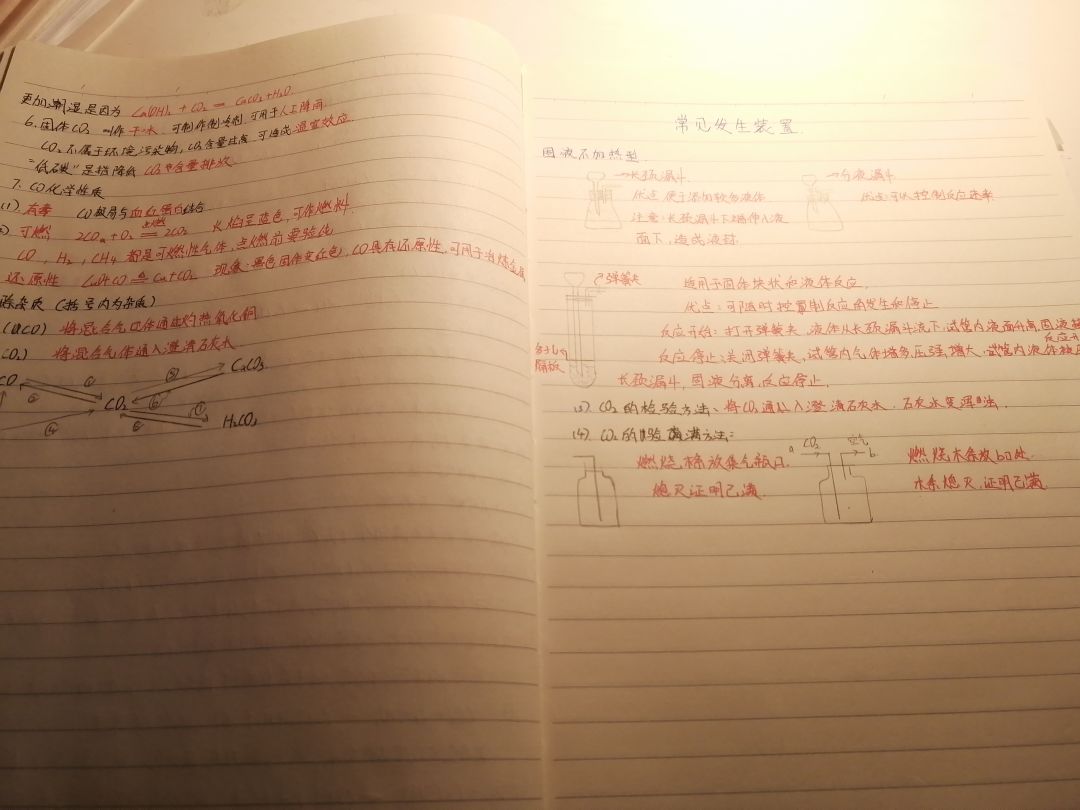 更加潮湿是因为 Ca(OH)₂ + CO₂ = CaCO₃ + H₂O.
6. 固体CO₂ 叫作干冰. 可制作制冷剂, 可用于人工降雨
CO₂不属于环境污染物, CO₂含量过高, 可造成温室效应.
"低石碳"是指降低 CO₂的含量排放.
7. CO化学性质
(1) 有毒 CO极易与血红蛋白结合.
可燃 2CO + O₂ 点燃 2CO₂ 火焰呈蓝色, 可作燃料.
CO, H₂, CH₄ 都是可燃性气体, 点燃前要验纯
还原性 CuO+CO △ Cu+CO₂ 现象: 黑色固体变红色, CO具有还原性, 可用于冶炼金属
除杂质 (括号内为杂质)
(CO) 将混合气体通过灼热氧化铜
CO₂) 将混合气体通入澄清石灰水
CO ① ② ③ CaCO₃
CO₂ ④ ⑤ ⑥ ⑦ H₂CO₃
常见发生装置.
固液不加热型.
→长颈漏斗. →分液漏斗
优点: 便于添加较多液体 优点: 可以控制反应速率
注意: 长颈漏斗下端伸入液
面下, 造成液封.
弹簧夹 适用于固体块状和液体反应.
优点: 可随时控制反应的发生和停止
反应开始: 打开弹簧夹, 液体从长颈漏斗流下, 试管内液面上升与固液接触 反应开
多孔 隔板 反应停止: 关闭弹簧夹, 试管内气体增多, 压强增大, 试管内液体被压
长颈漏斗, 固液分离, 反应停止.
(3) CO₂的检验方法: 将CO₂通入澄清石灰水, 石灰水变浑浊.
(4) CO₂的验满方法:
燃烧木条放集气瓶口. a CO₂ 空气 b 燃烧木条放b口处.
熄灭证明已满. 木条熄灭, 证明已满